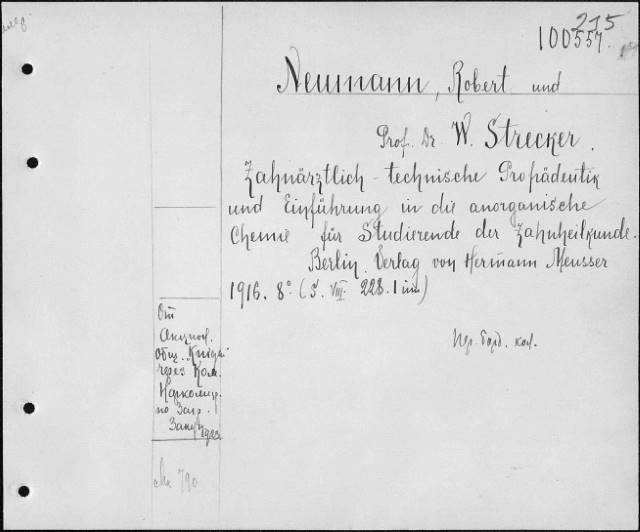 215
100557.
Neumann, Robert und
Prof. Dr W. Strecker.
Zahnärztlich-technische Propädeutik
und Einführung in die anorganische
Chemie für Studierende der Zahnheilkunde.
Berlin. Verlag von Hermann Meusser
1916. 8° (S. VIII. 228. 1 im)
От
Акцион.
Общ. Книга
через Ком.
Наркомпр.
по Загр.
Закуп. 1922
790